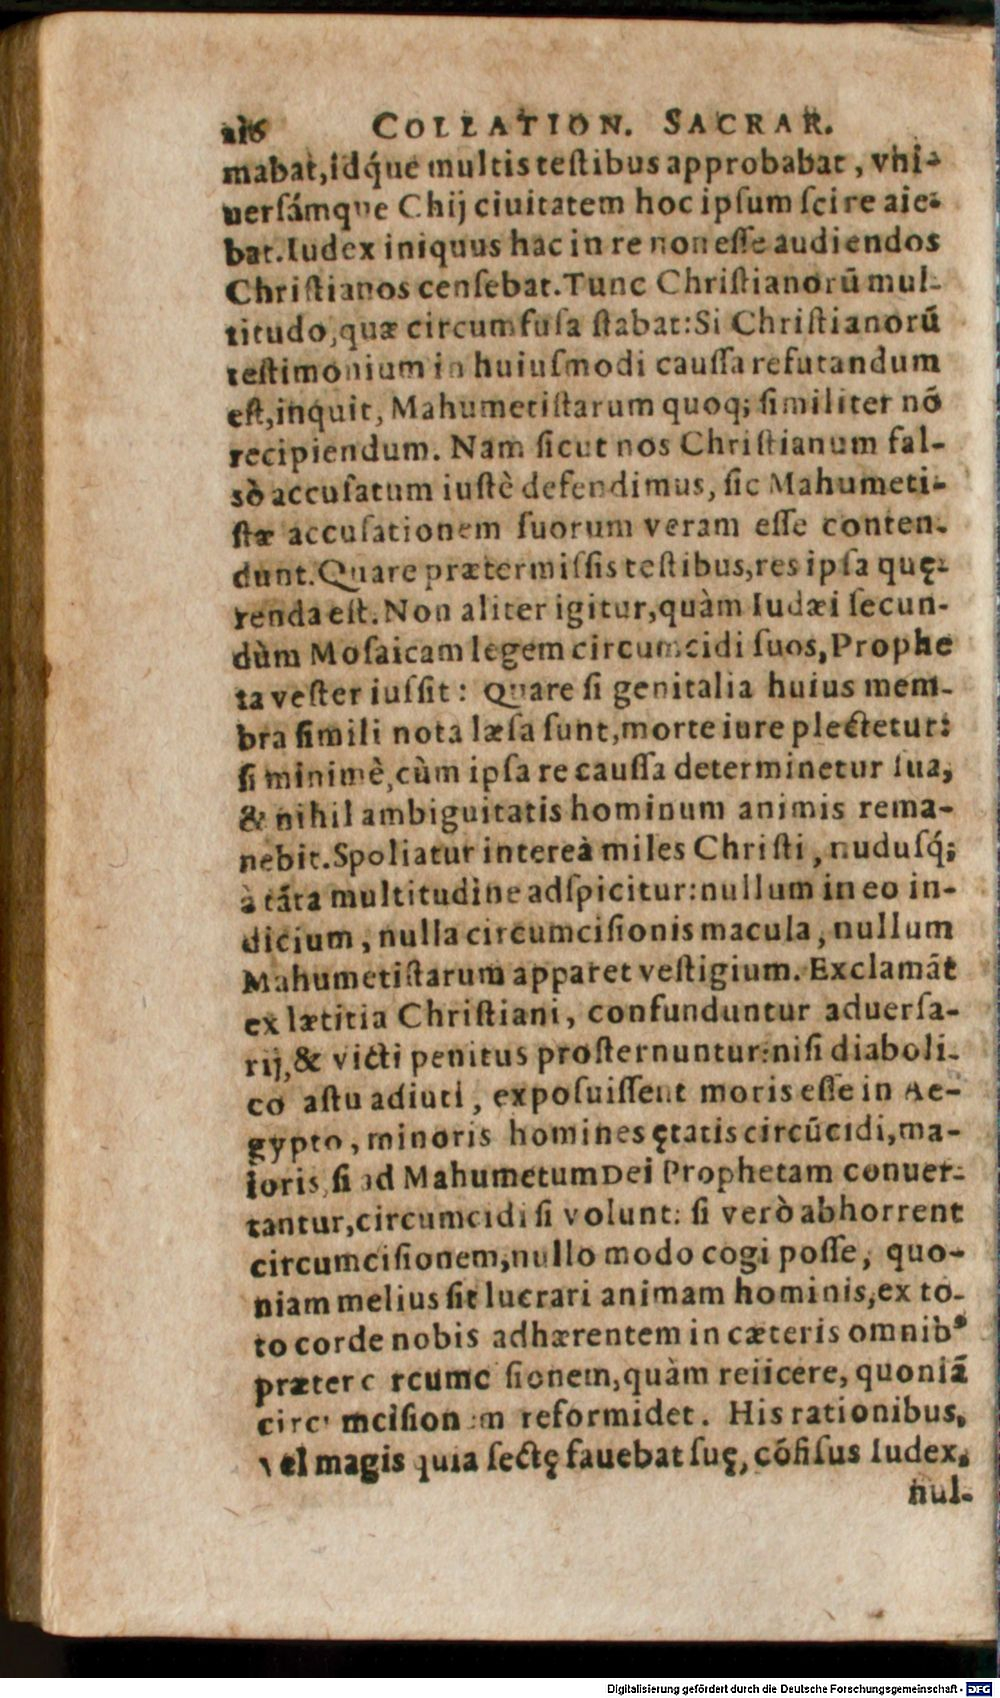 216 COLLATION. SACRAR.
mabat,idq́ue multis teſtibus approbabat, vni-
uerſámque Chij ciuitatem hoc ipſum ſcire aie-
bat. Iudex iniquus hac in re non eſſe audiendos
Chriſtianos cenſebat. Tunc Chriſtianorũ mul-
titudo, quæ circumfuſa ſtabat: Si Chriſtianorũ
teſtimonium in huiuſmodi cauſſa refutandum
eſt, inquit, Mahumetiſtarum quoq; ſimiliter nõ
recipiendum. Nam ſicut nos Chriſtianum fal-
sò accuſatum iuſtè defendimus, ſic Mahumeti-
ſtæ accuſationem ſuorum veram eſſe conten-
dunt. Quare prætermiſſis teſtibus, res ipſa quę-
renda eſt. Non aliter igitur, quàm Iudæi ſecun-
dùm Moſaicam legem circumcidi ſuos, Prophe
ta veſter iuſſit: Quare ſi genitalia huius mem-
bra ſimili nota læſa ſunt, morte iure plectetur:
ſi minimè, cùm ipſa re cauſſa determinetur ſua,
& nihil ambiguitatis hominum animis rema-
nebit. Spoliatur intereà miles Chriſti, nuduſq́;
à tãta multitudine adſpicitur: nullum in eo in-
dicium, nulla circumciſionis macula, nullum
Mahumetiſtarum apparet veſtigium. Exclamãt
ex lætitia Chriſtiani, confunduntur aduerſa-
rij, & victi penitus proſternuntur: niſi diaboli-
co aſtu adiuti, expoſuiſſent moris eſſe in Ae-
gypto, minoris homines ętatis circũcidi, ma-
ioris, ſi ad Mahumetum Dei Prophetam conuer-
tantur, circumcidi ſi volunt: ſi verò abhorrent
circumciſionem, nullo modo cogi poſſe, quo-
niam melius ſit lucrari animam hominis, ex to-
to corde nobis adhærentem in cæteris omnib⁹
præter c rcumc ſionem, quàm reiicere, quoniã
circumciſionem reformidet. His rationibus,
vel magis quia ſectę fauebat ſuę, cõfiſus Iudex,
nul-
Digitalisierung gefördert durch die Deutsche Forschungsgemeinschaft - DFG